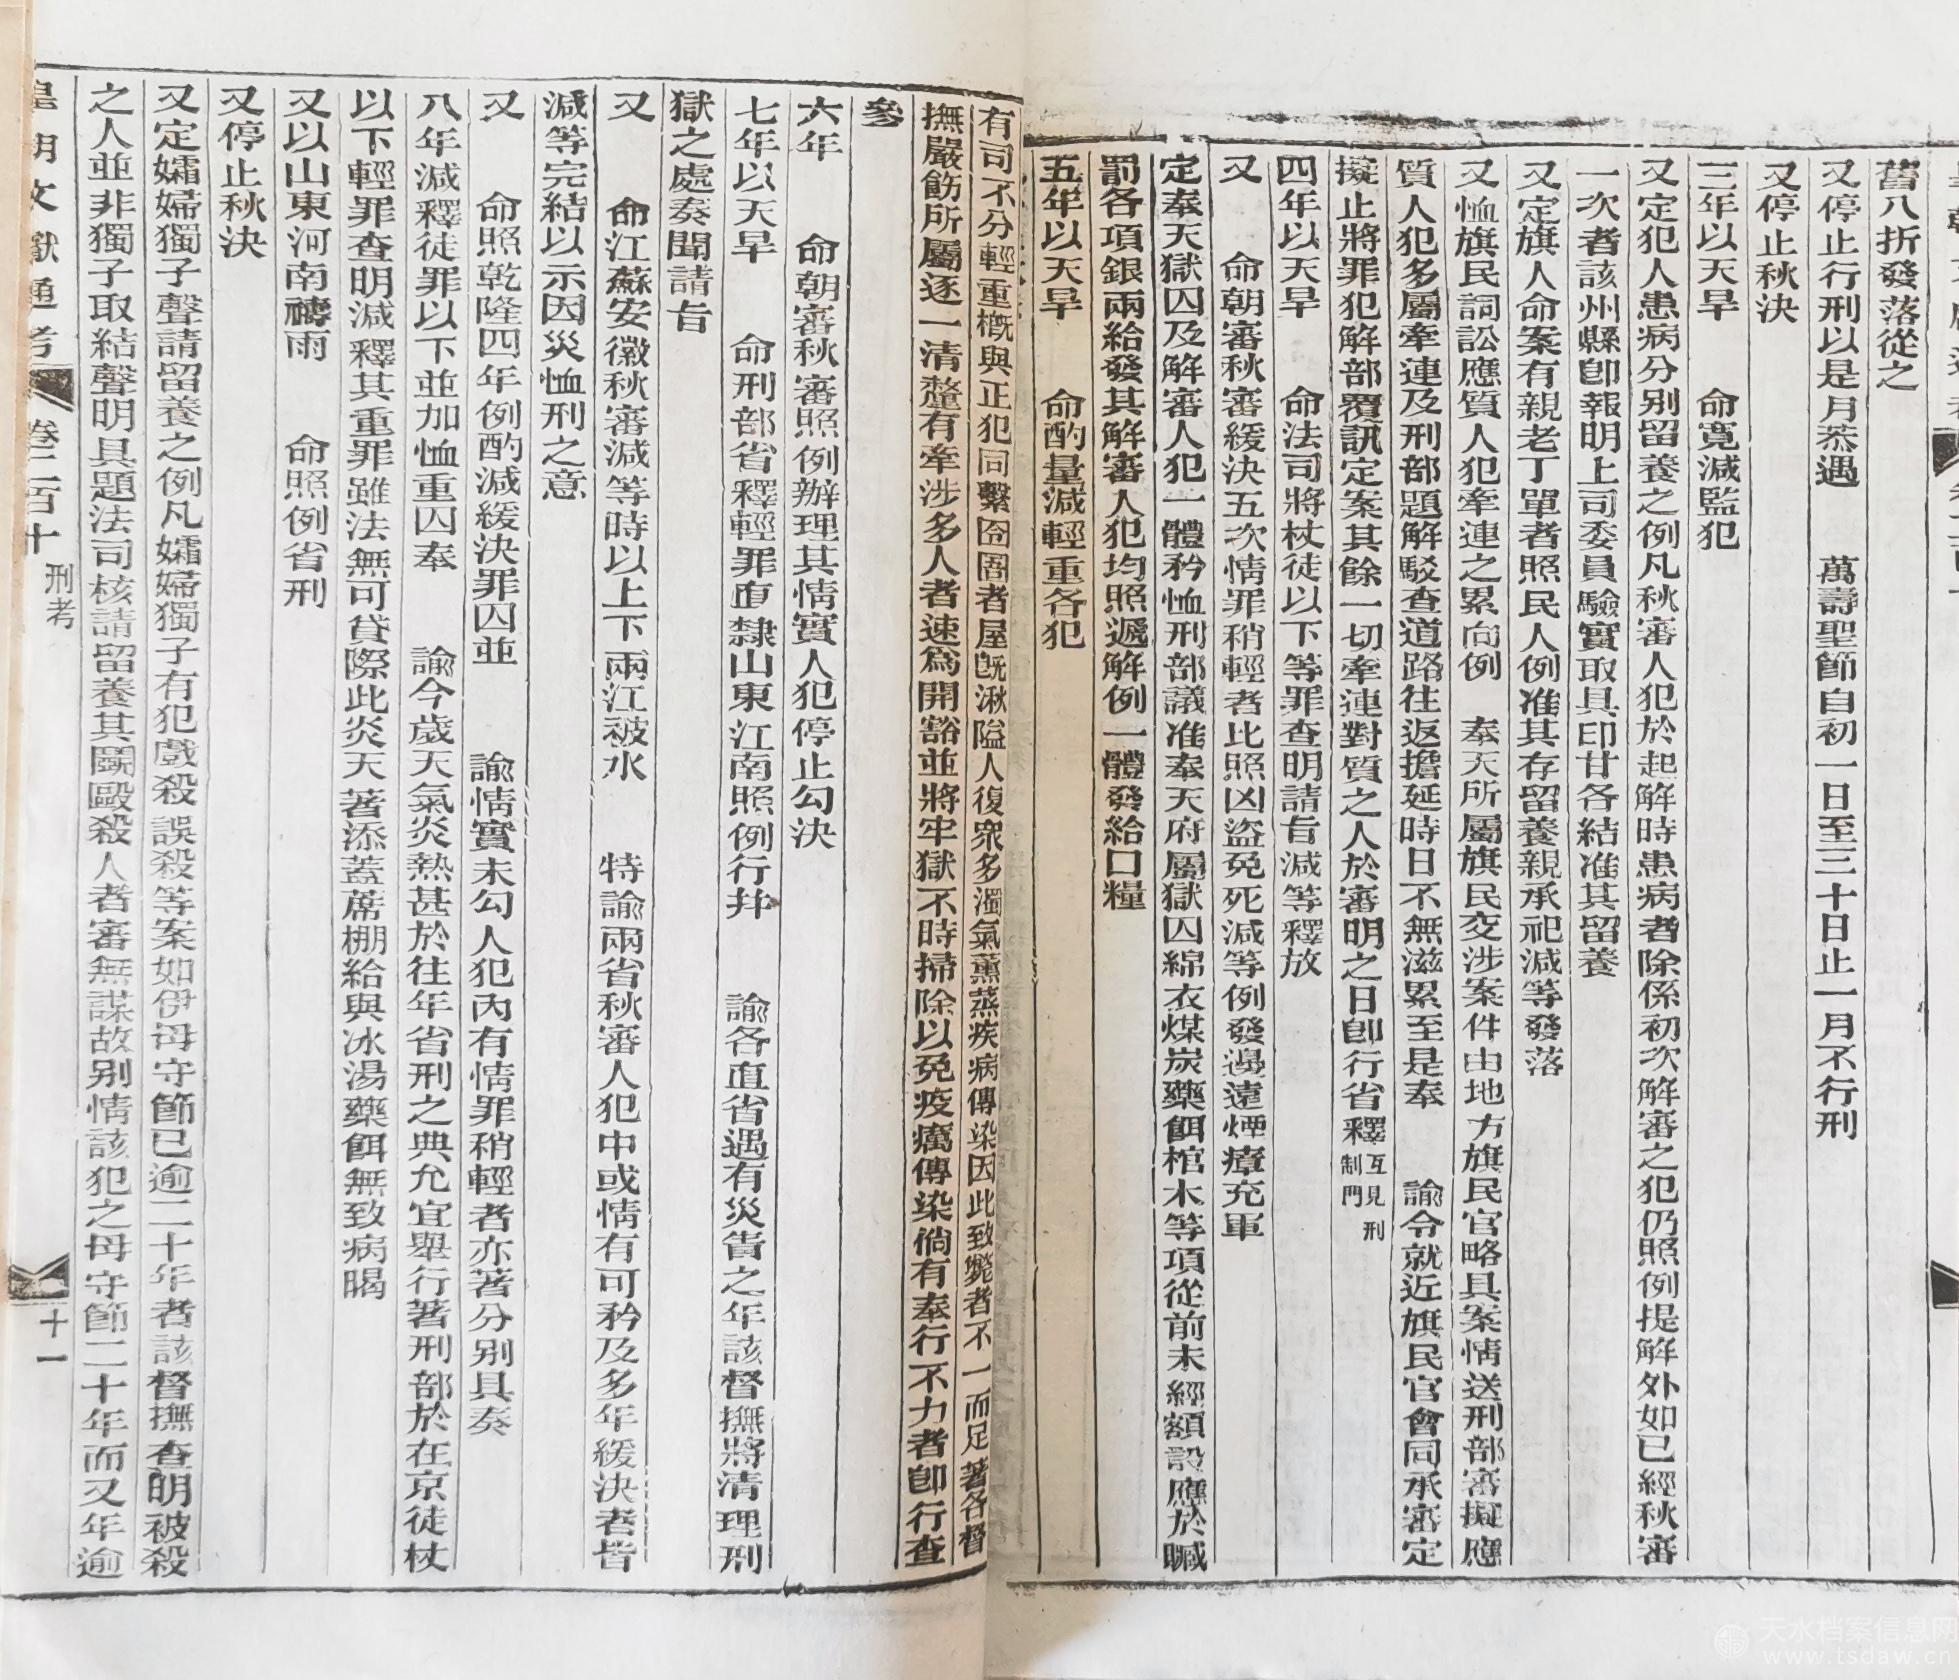 舊八折發落從之
又停止行刑以是月恭遇　萬壽聖節自初一日至三十日止一月不行刑
又停止秋決
三年以天旱　命寬減監犯
又定犯人患病分別留養之例凡秋審人犯於起解時患病者除係初次解審之犯仍照例提解外如已經秋審
一次者該州縣卽報明上司委員驗實取具印甘各結准其留養
又定旗人命案有親老丁單者照民人例准其存留養親承祀減等發落
又恤旗民詞訟應質人犯牽連之累向例　奉天所屬旗民交涉案件由地方旗民官略具案情送刑部審擬應
質人犯多屬牽連及刑部題解駁查道路往返擔延時日不無滋累至是奉　諭令就近旗民官會同承審定
擬止將罪犯解部覆訊定案其餘一切牽連對質之人於審明之日卽行省釋互見刑制門
四年以天旱　命法司將杖徒以下等罪查明請旨減等釋放
又　命朝審秋審緩決五次情罪稍輕者比照凶盜免死減等例發邊遠煙瘴充軍
定奉天獄囚及解審人犯一體矜恤刑部議准奉天府屬獄囚綿衣煤炭藥餌棺木等項從前未經額設應於贓
罰各項銀兩給發其解審人犯均照遞解例一體發給口糧
五年以天旱　命酌量減輕重各犯
有司不分輕重槪與正犯同繫囹圄者屋旣湫隘人復衆多濁氣薰蒸疾病傳染因此致斃者不一而足著各督
撫嚴飭所屬逐一清釐有牽涉多人者速爲開豁並將牢獄不時掃除以免疫癘傳染倘有奉行不力者卽行查
參
六年　命朝審秋審照例辦理其情實人犯停止勾決
七年以天旱　命刑部省釋輕罪直隸山東江南照例行幷　諭各直省遇有災眚之年該督撫將清理刑
獄之處奏聞請旨
又　命江蘇安徽秋審減等時以上下兩江被水　特諭兩省秋審人犯中或情有可矜及多年緩決者皆
減等完結以示因災恤刑之意
又　命照乾隆四年例酌減緩決罪囚並　諭情實未勾人犯內有情罪稍輕者亦著分別具奏
八年減釋徒罪以下並加恤重囚奉　諭今歲天氣炎熱甚於往年省刑之典允宜舉行著刑部於在京徒杖
以下輕罪查明減釋其重罪雖法無可貸際此炎天著添蓋蓆棚給與冰湯藥餌無致病暍
又以山東河南禱雨　命照例省刑
又停止秋決
又定孀婦獨子聲請留養之例凡孀婦獨子有犯戲殺誤殺等案如伊母守節已逾二十年者該督撫查明被殺
之人並非獨子取結聲明具題法司核請留養其鬬毆殺人者審無謀故別情該犯之母守節二十年而又年逾
皇朝文獻通考　卷二百十　刑考　十一
天水档案信息网
www.tsdaw.cn